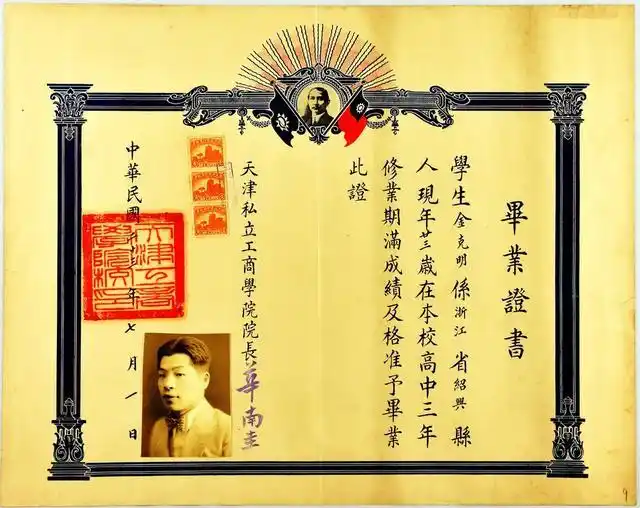 畢業證書
學生金克明係浙江省紹興縣
人現年廿三歲在本校高中三年
修業期滿成績及格准予畢業
此證
天津私立工商學院院長華南圭
中華民國廿三年七月一日
9